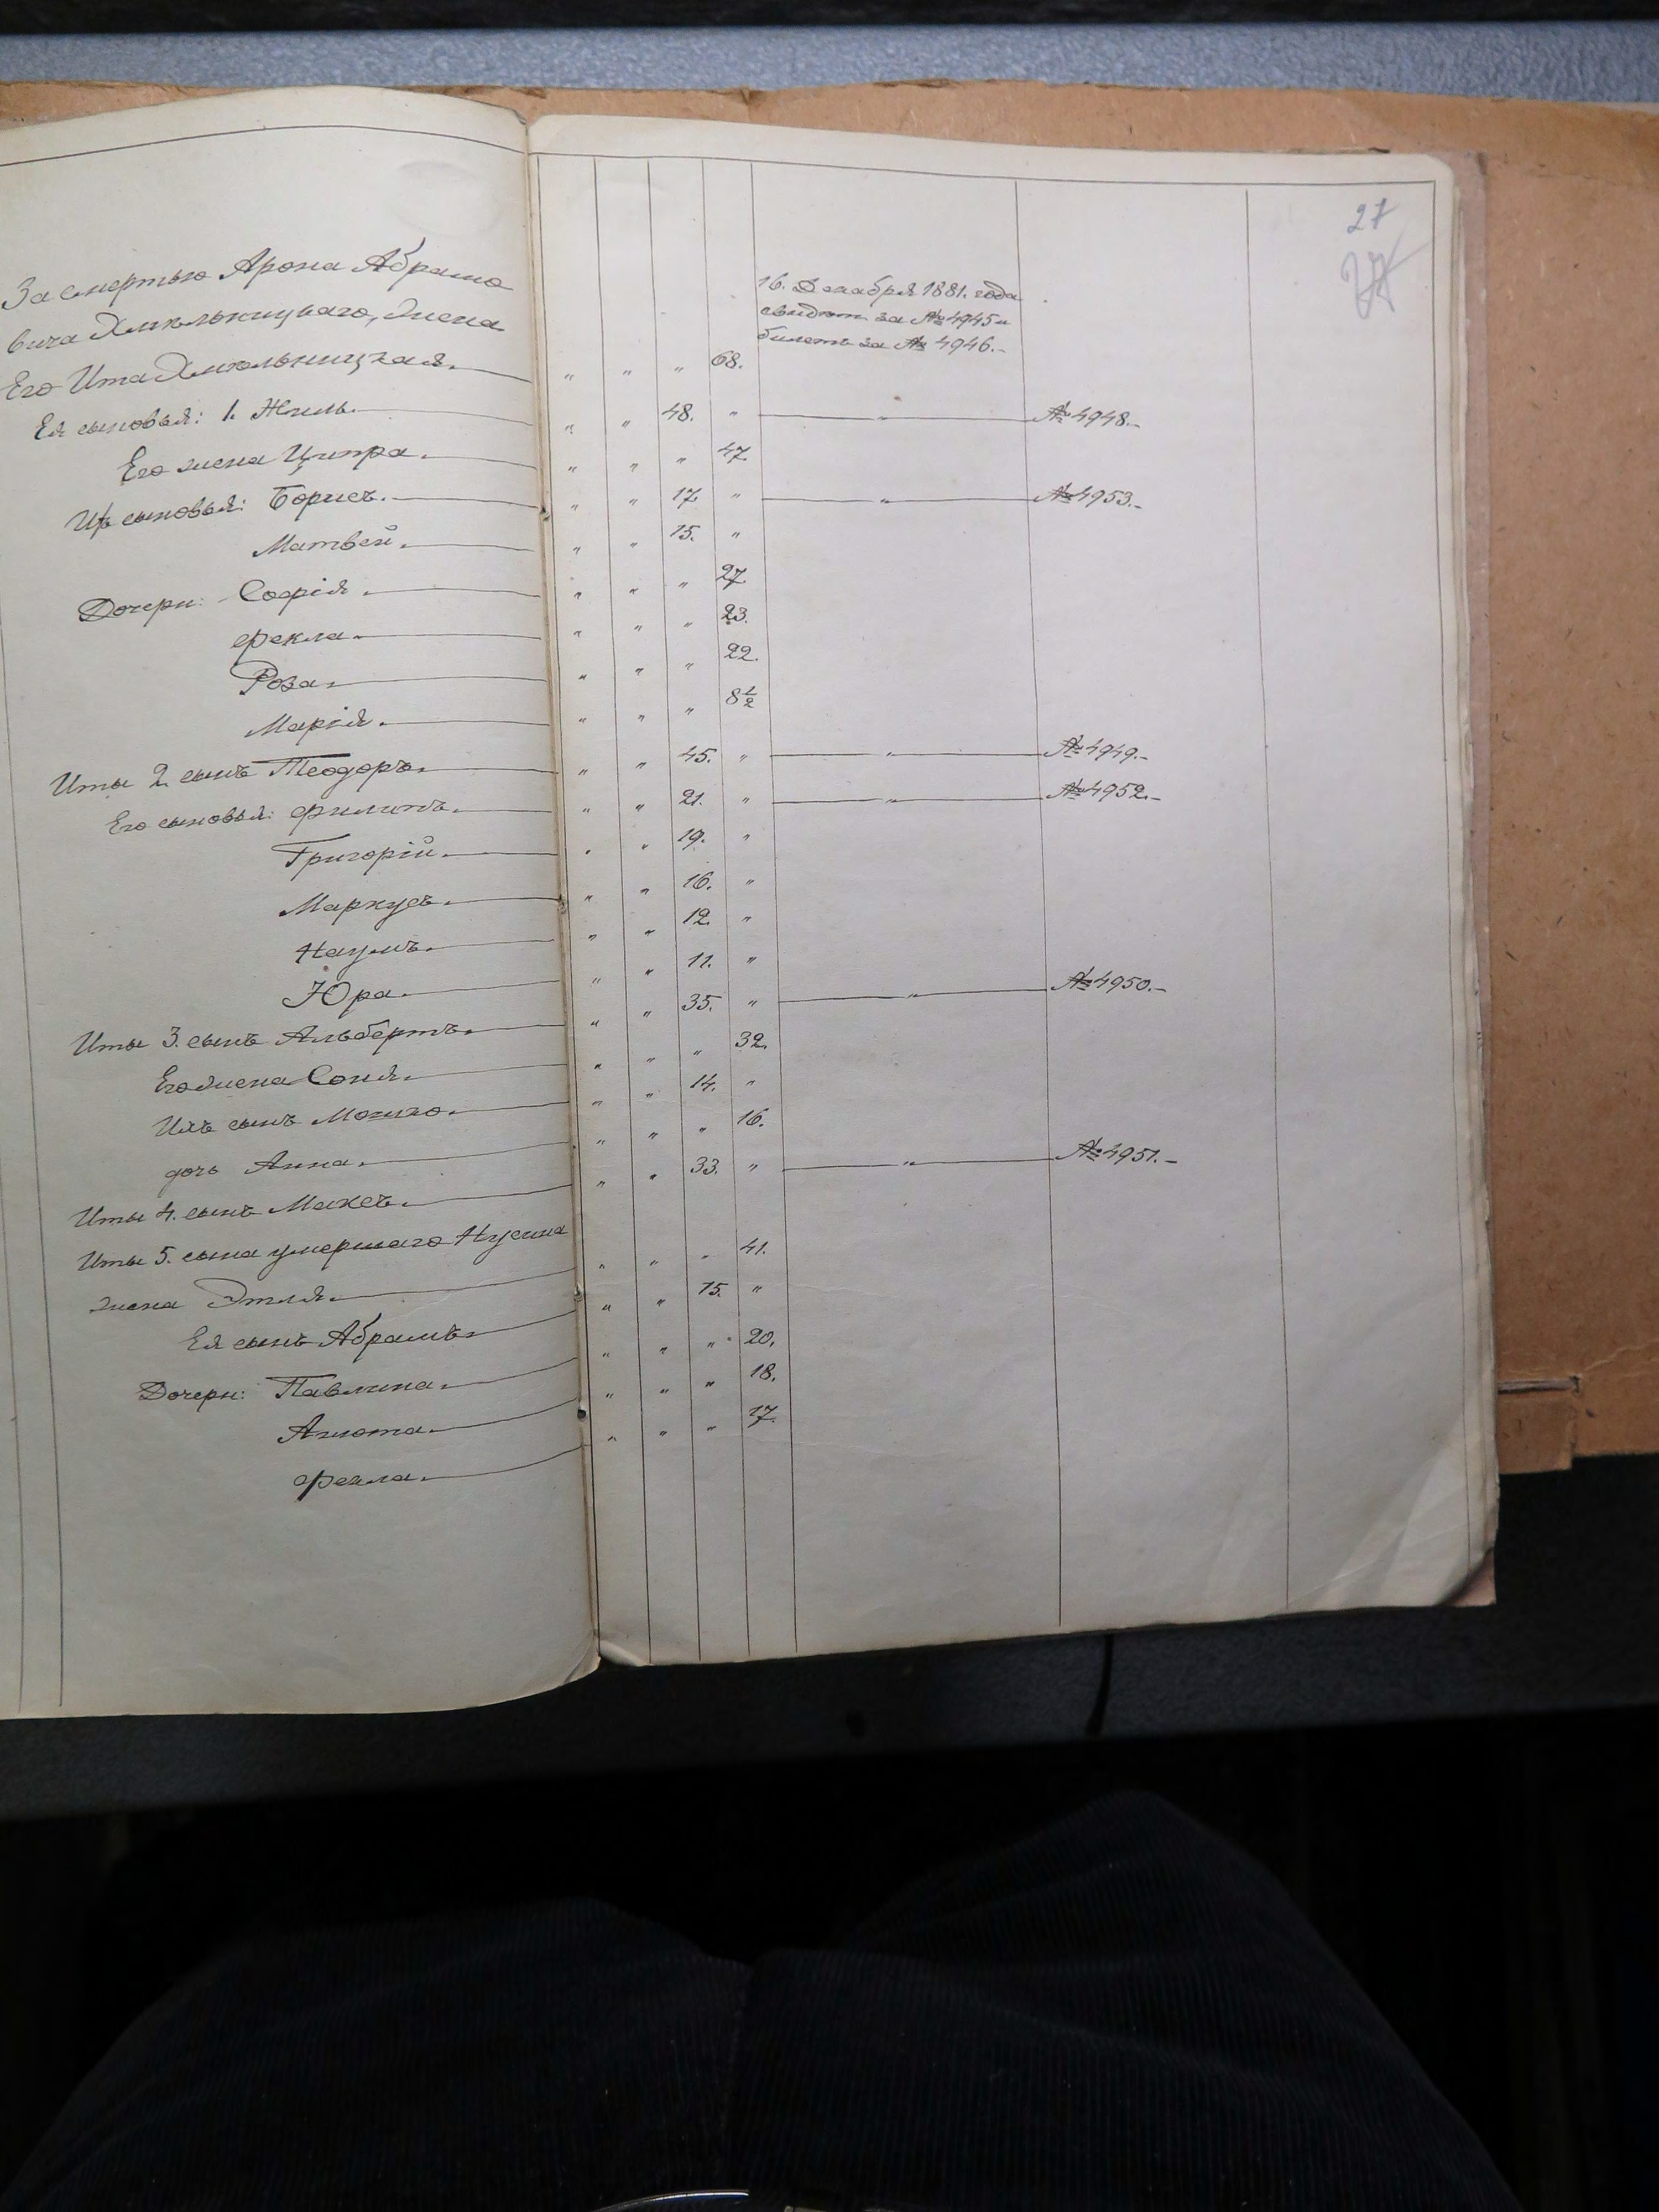 27
За смертью Арона Абрамо
вича Хмельницкаго, жена
Его Ита Хмельницкая. " " " 68. 16. Декабря 1881. года
свидет. за № 4945 и
билетъ за № 4946.
Ея сыновья: 1. Хиль. " " 48. " " № 4948.
Его жена Ципра. " " " 47.
Их сыновья: Борисъ. " " 17. " " № 4953.
Матвей. " " 15. "
Дочери: Софія. " " " 27.
Фекла. " " " 23.
Роза. " " " 22.
Марія. " " " 8 1/2
Иты 2. сынъ Теодоръ. " " 45. " " № 4949.
Его сыновья: Филипъ. " " 21. " " № 4952.
Григорій. " " 19. "
Маркусъ. " " 16. "
Наумъ. " " 12. "
Юра. " " 11. "
Иты 3. сынъ Альбертъ. " " 35. " " № 4950.
Его жена Соня. " " " 32.
Ихъ сынъ Мошко. " " 14. "
дочь Анна. " " " 16.
Иты 4. сынъ Максъ. " " 33. " " № 4951.
Иты 5. сына умершаго Нусина
жена Этля. " " " 41.
Ея сынъ Абрамъ. " " 15. "
Дочери: Павлина. " " " 20.
Анюта. " " " 18.
Фекла. " " " 17.